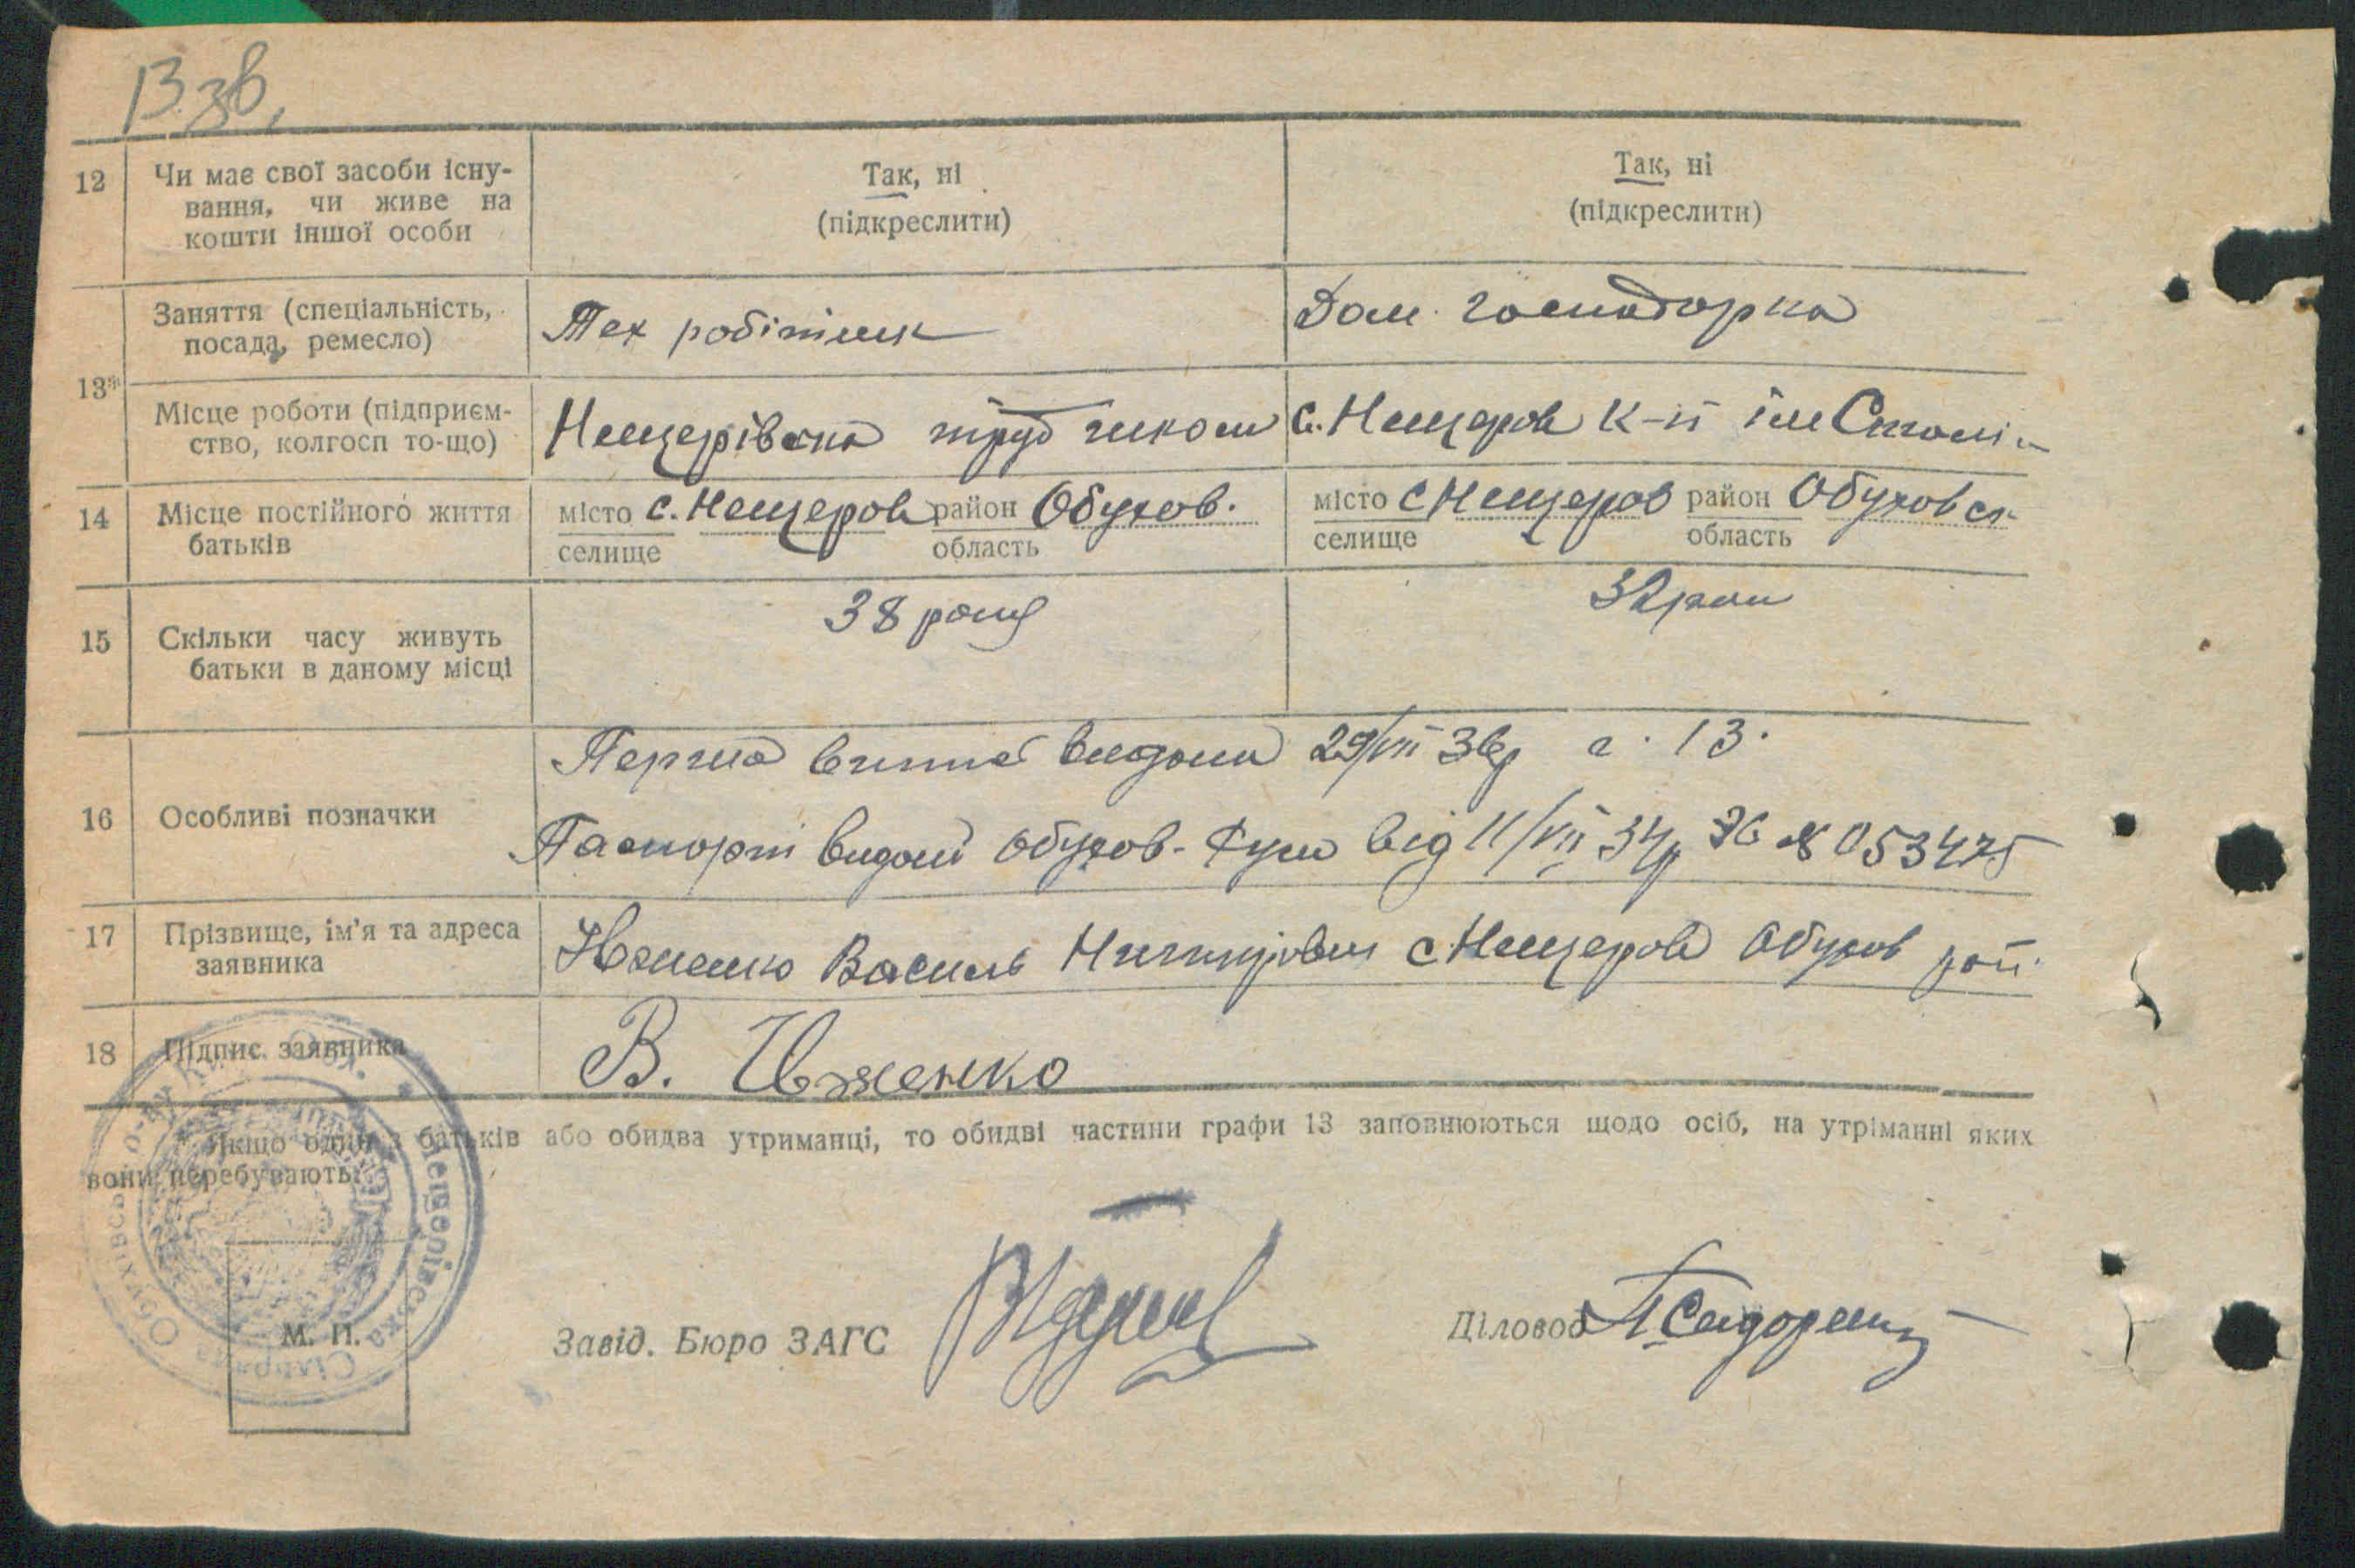 13 зв.
12 Чи має свої засоби існу-
вання, чи живе на
кошти іншої особи
Так, ні
(підкреслити)
Так, ні
(підкреслити)
13*
Заняття (спеціальність,
посада, ремесло)
Тех робітник
Дом. господорка
Місце роботи (підприєм-
ство, колгосп то-що)
Нещерівська труд школи
с. Нещеров К-п ім Сталін
14 Місце постійного життя
батьків
місто с. Нещеров район Обухов.
селище область
місто с Нещеров район Обуховск
селище область
15 Скільки часу живуть
батьки в даному місці
38 років
32 роки
16 Особливі позначки
Перша видана 29/VII 36р 13.
Паспорт видан Обухов. від 11/VII 34р № 053475
17 Прізвище, ім'я та адреса
заявника
Ивженко Василь с Нещеров Обухов рай.
18 Підпис заявника
В. Ивженко
* Якщо один з батьків або обидва утриманці, то обидві частини графи 13 заповнюються щодо осіб, на утріманні яких
вони перебувають.
Обухівсько р-ну Київ. Обл. * Нещерівська Сільрада
М. П.
Завід. Бюро ЗАГС
Діловод